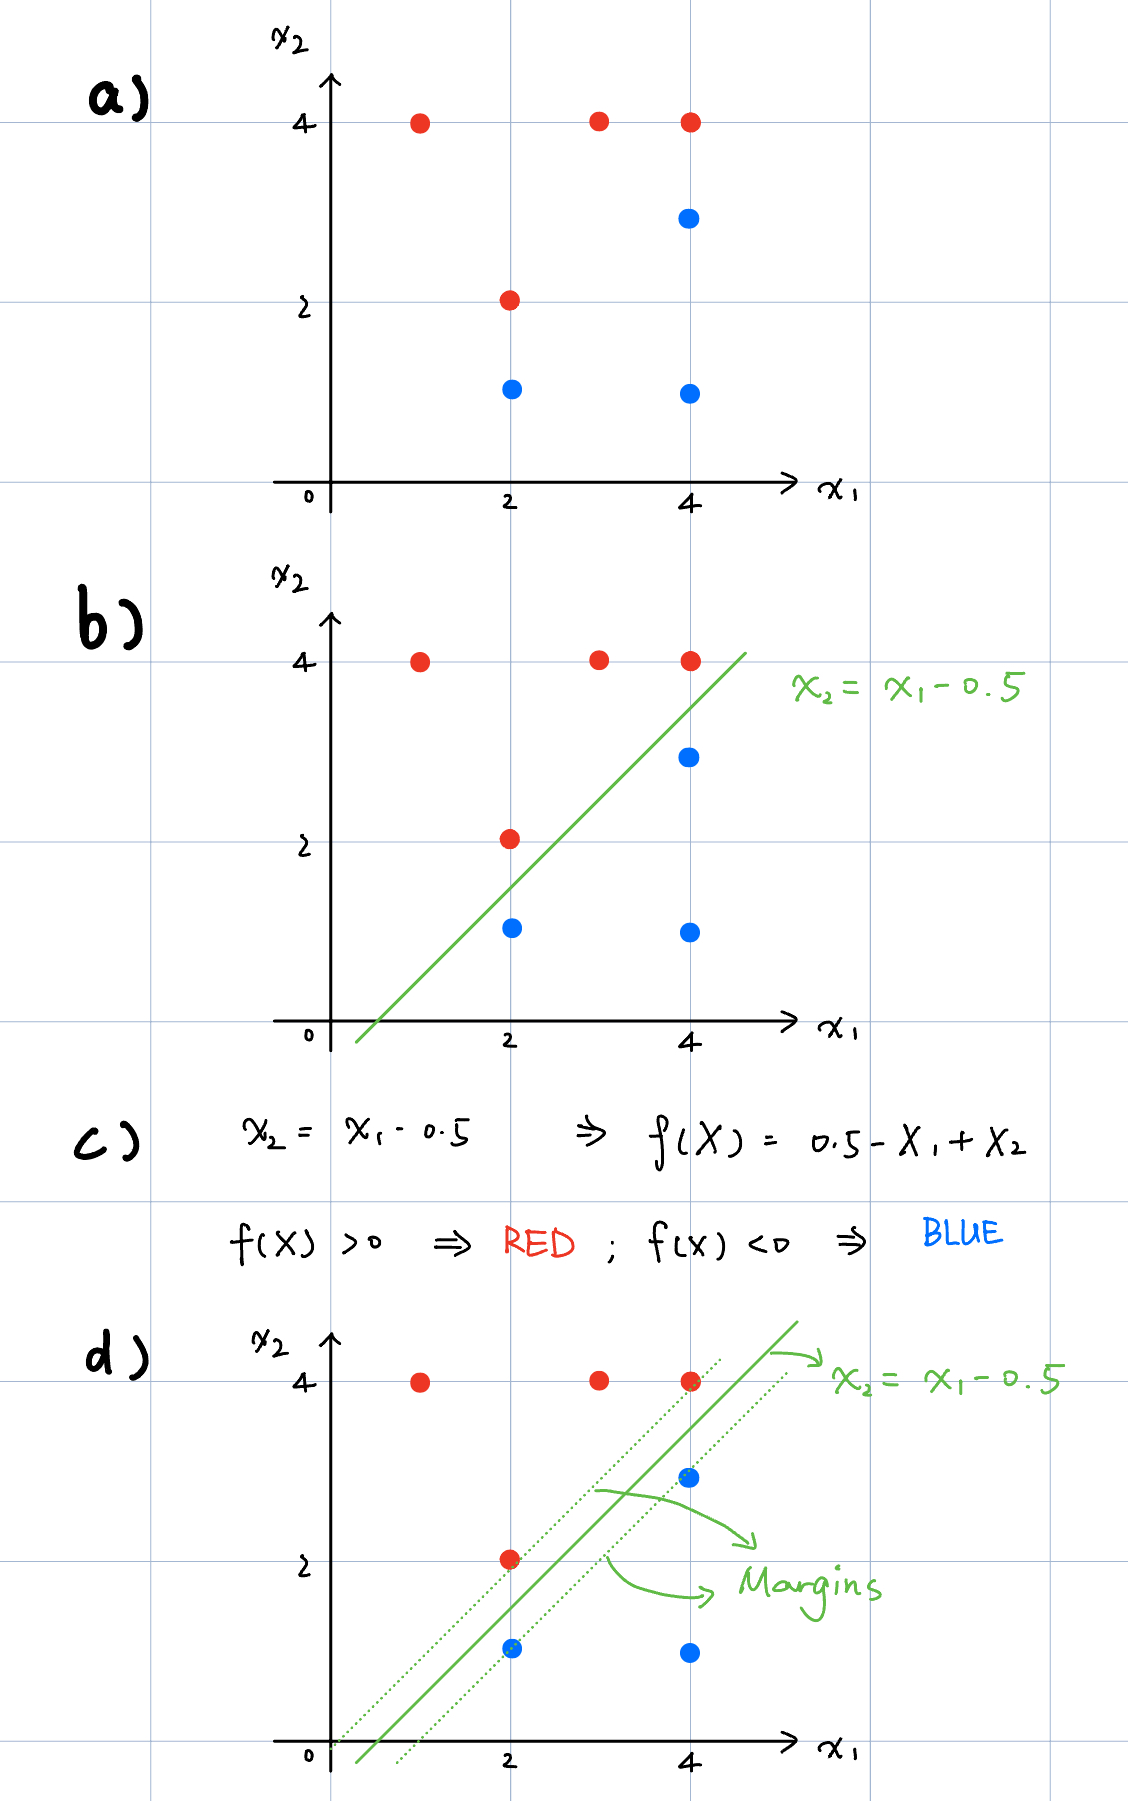 x₂
a)
4
2
0
2
4
x₁
x₂
b)
4
x₂ = x₁ - 0.5
2
0
2
4
x₁
c) x₂ = x₁ - 0.5 ⇒ f(X) = 0.5 - X₁ + X₂
f(X) > 0 ⇒ RED ; f(X) < 0 ⇒ BLUE
d)
x₂
4
x₂ = x₁ - 0.5
2
Margins
0
2
4
x₁